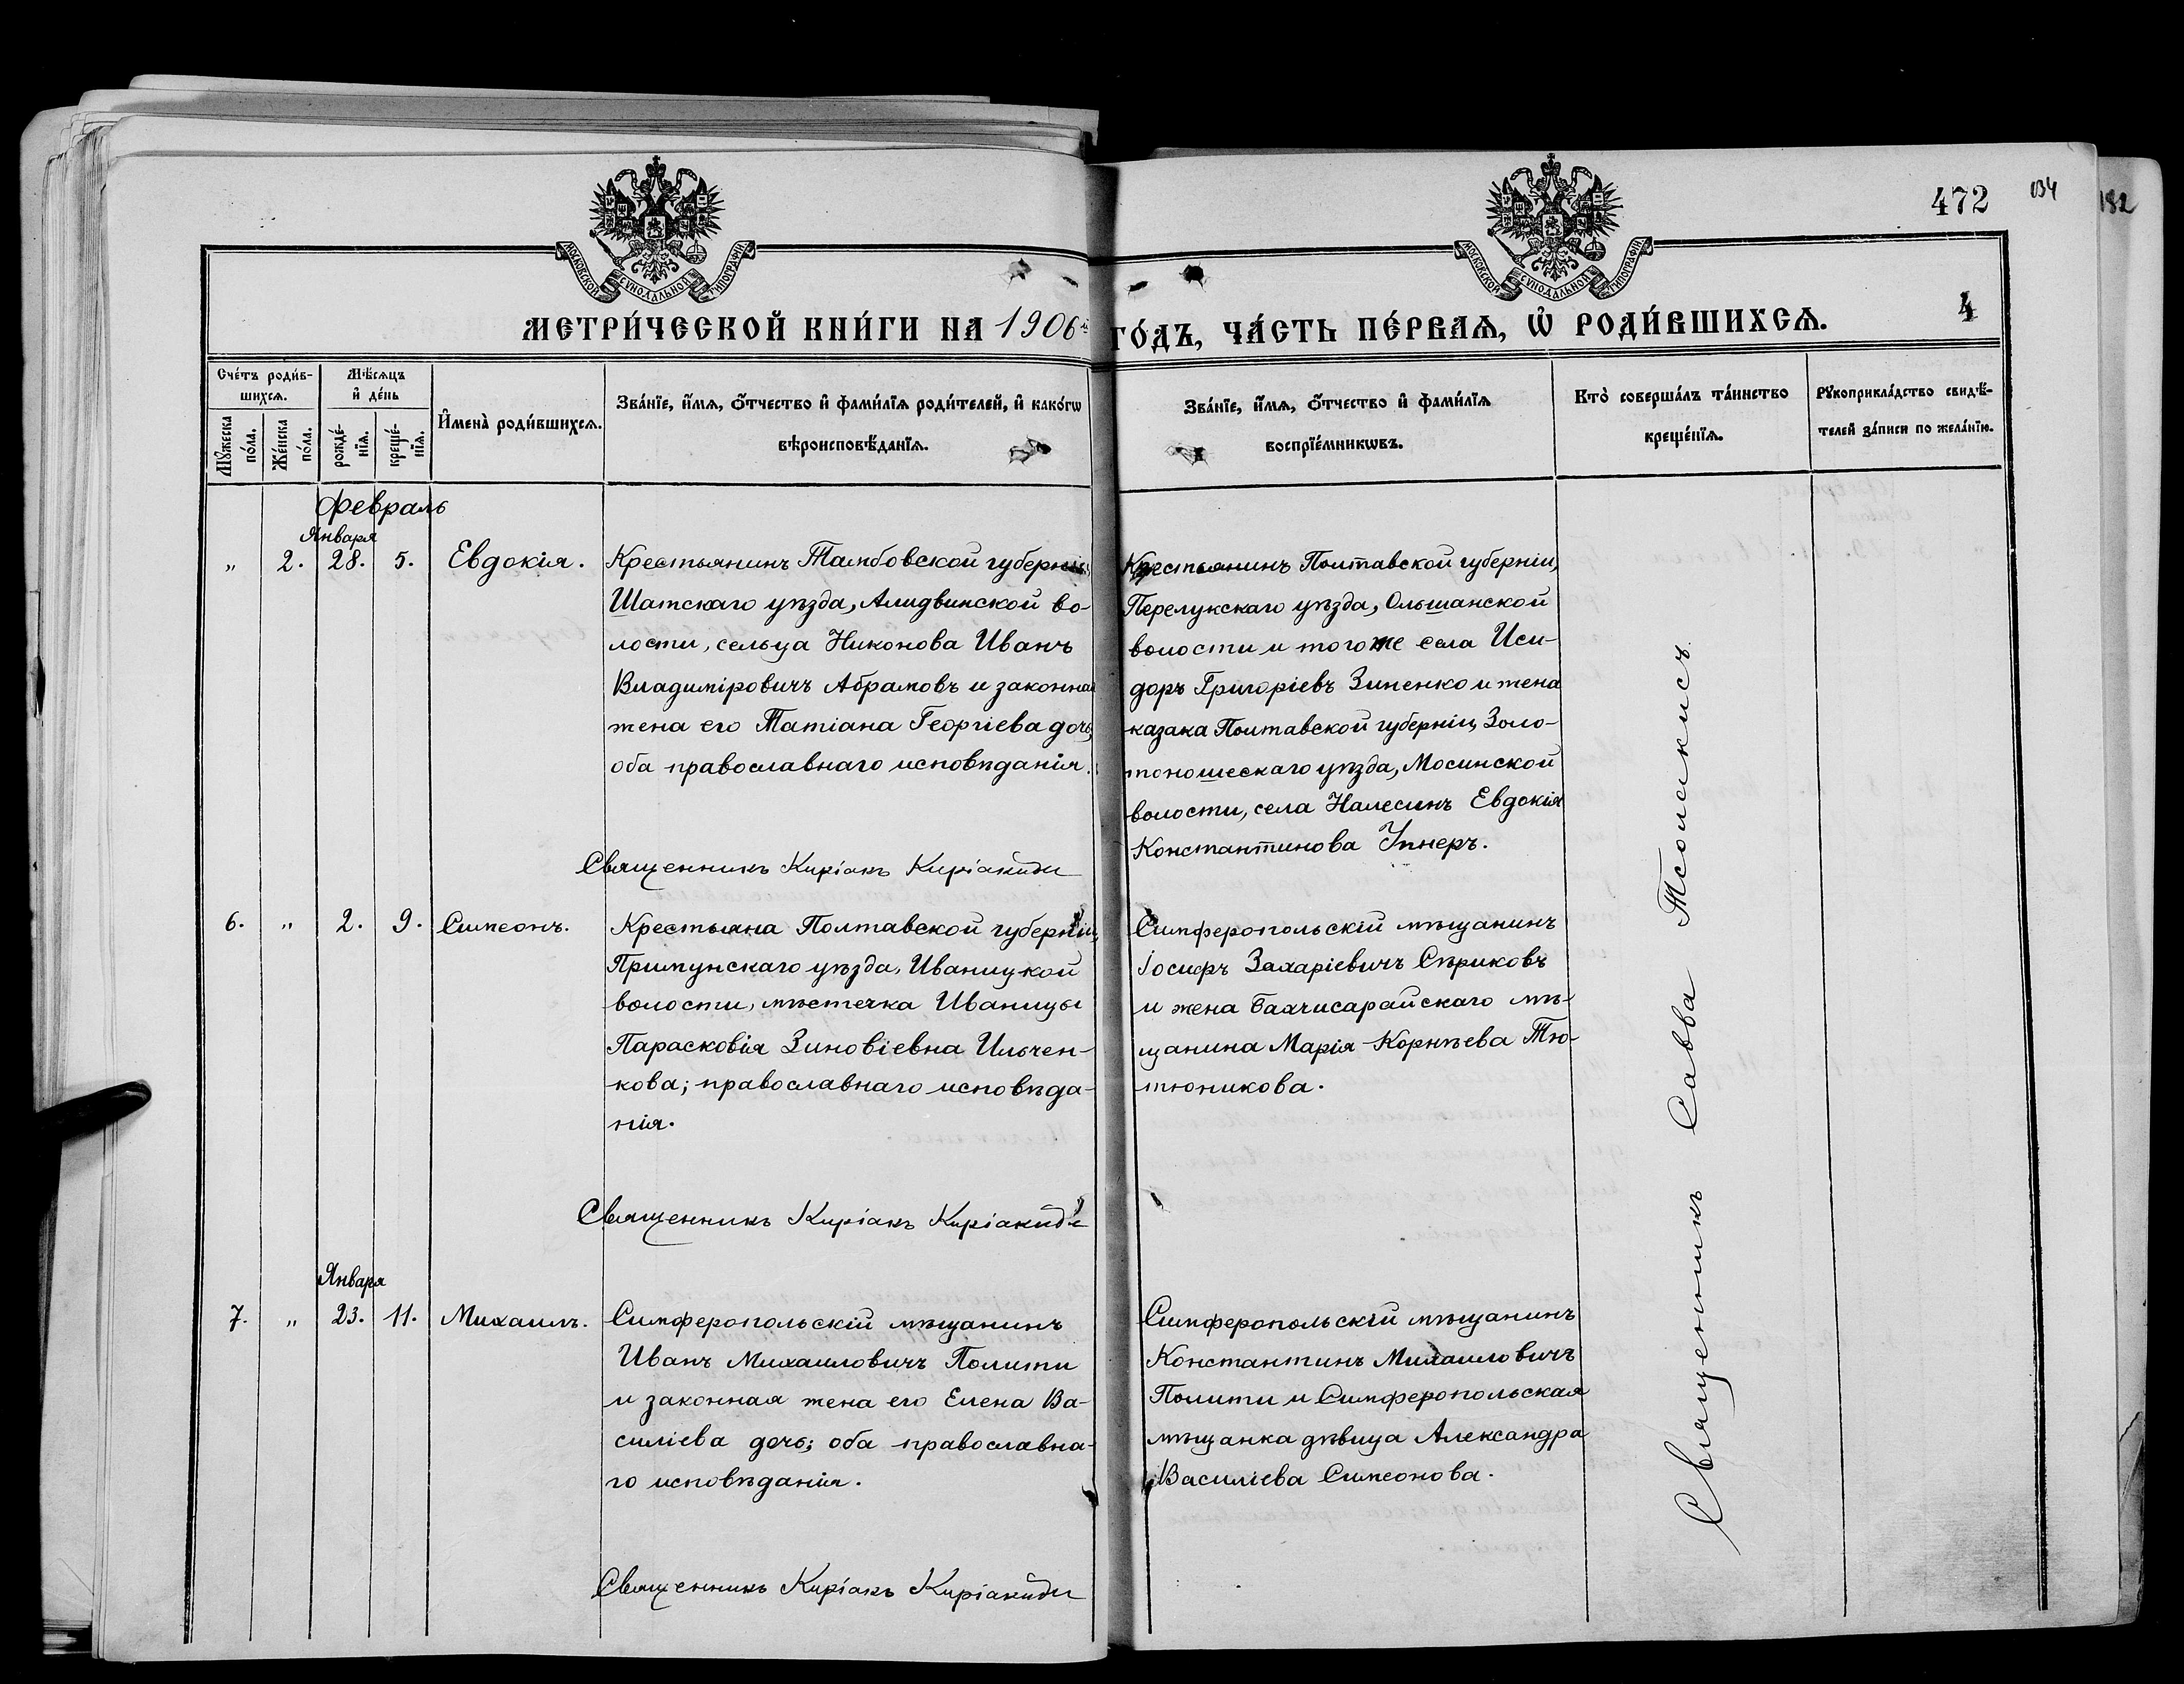 МОСКОВСКОЙ СУНОДАЛЬНОЙ ТИПОГРАФІИ
МОСКОВСКОЙ СУНОДАЛЬНОЙ ТИПОГРАФІИ
472
134
182
4
МЕТРИ́ЧЕСКОЙ КНИ́ГИ НА 1906й ГО́ДЪ, ЧА́СТЬ ПЕ́РВАѦ, Ѡ҆ РОДИ́ВШИХСѦ.
Сче́тъ роди́в-
шихсѧ.
Мꙋжеска
по́ла.
Же́нска
по́ла.
Мѣ́сѧцъ
и҆ де́нь
рожде́-
нїѧ.
креще́-
нїѧ.
И҆мена̀ роди́вшихсѧ.
Зва́нїе, и҆́мѧ, ѻ҆́тчество и҆ фами́лїѧ роди́телей, и҆ како́гѡ
вѣроисповѣ́данїѧ.
Зва́нїе, и҆́мѧ, ѻ҆́тчество и҆ фами́лїѧ
воспрїе́мникѡвъ.
Кто̀ соверша́лъ та́инство
креще́нїѧ.
Рꙋкоприкла́дство свидѣ́-
телей за́писи по жела́нїю.
Февраль
Января
„ 2. 28. 5. Евдокія.
Крестьянинъ Тамбовской губерніи,
Шатскаго уѣзда, Алидвинской во-
лости, сельца Никонова Иванъ
Владиміровичъ Абрамовъ и законная
жена его Татіана Георгіева дочь,
оба православнаго исповѣданія.
Священникъ Киріакъ Киріакиди
Крестьянинъ Полтавской губерніи,
Перелукскаго уѣзда, Ольшанской
волости и того же села Иси-
доръ Григоріевъ Зиненко и жена
казака Полтавской губерніи, Золо-
тоношескаго уѣзда, Мосинской
волости, села Налесинъ Евдокія
Константинова
6. „ 2. 9. Симеонъ.
Крестьяна Полтавской губерніи,
Прилунскаго уѣзда, Иваницкой
волости, мѣстечка Иваницы
Парасковія Зиновіевна Ильчен-
кова; православнаго исповѣда-
нія.
Священникъ Киріакъ Киріакиди
Симферопольскій мѣщанинъ
Іосифъ Захаріевичъ Сѣриковъ
и жена Бахчисарайскаго мѣ-
щанина Марія Корнѣева Тю-
тюникова.
Января
7. „ 23. 11. Михаилъ.
Симферопольскій мѣщанинъ
Иванъ Михаиловичъ Полити
и законная жена его Елена Ва-
силіева дочь; оба православна-
го исповѣданія.
Священникъ Киріакъ Киріакиди
Симферопольскій мѣщанинъ
Константинъ Михаиловичъ
Полити и Симферопольская
мѣщанка дѣвица Александра
Василіева Симеонова.
Священникъ Савва